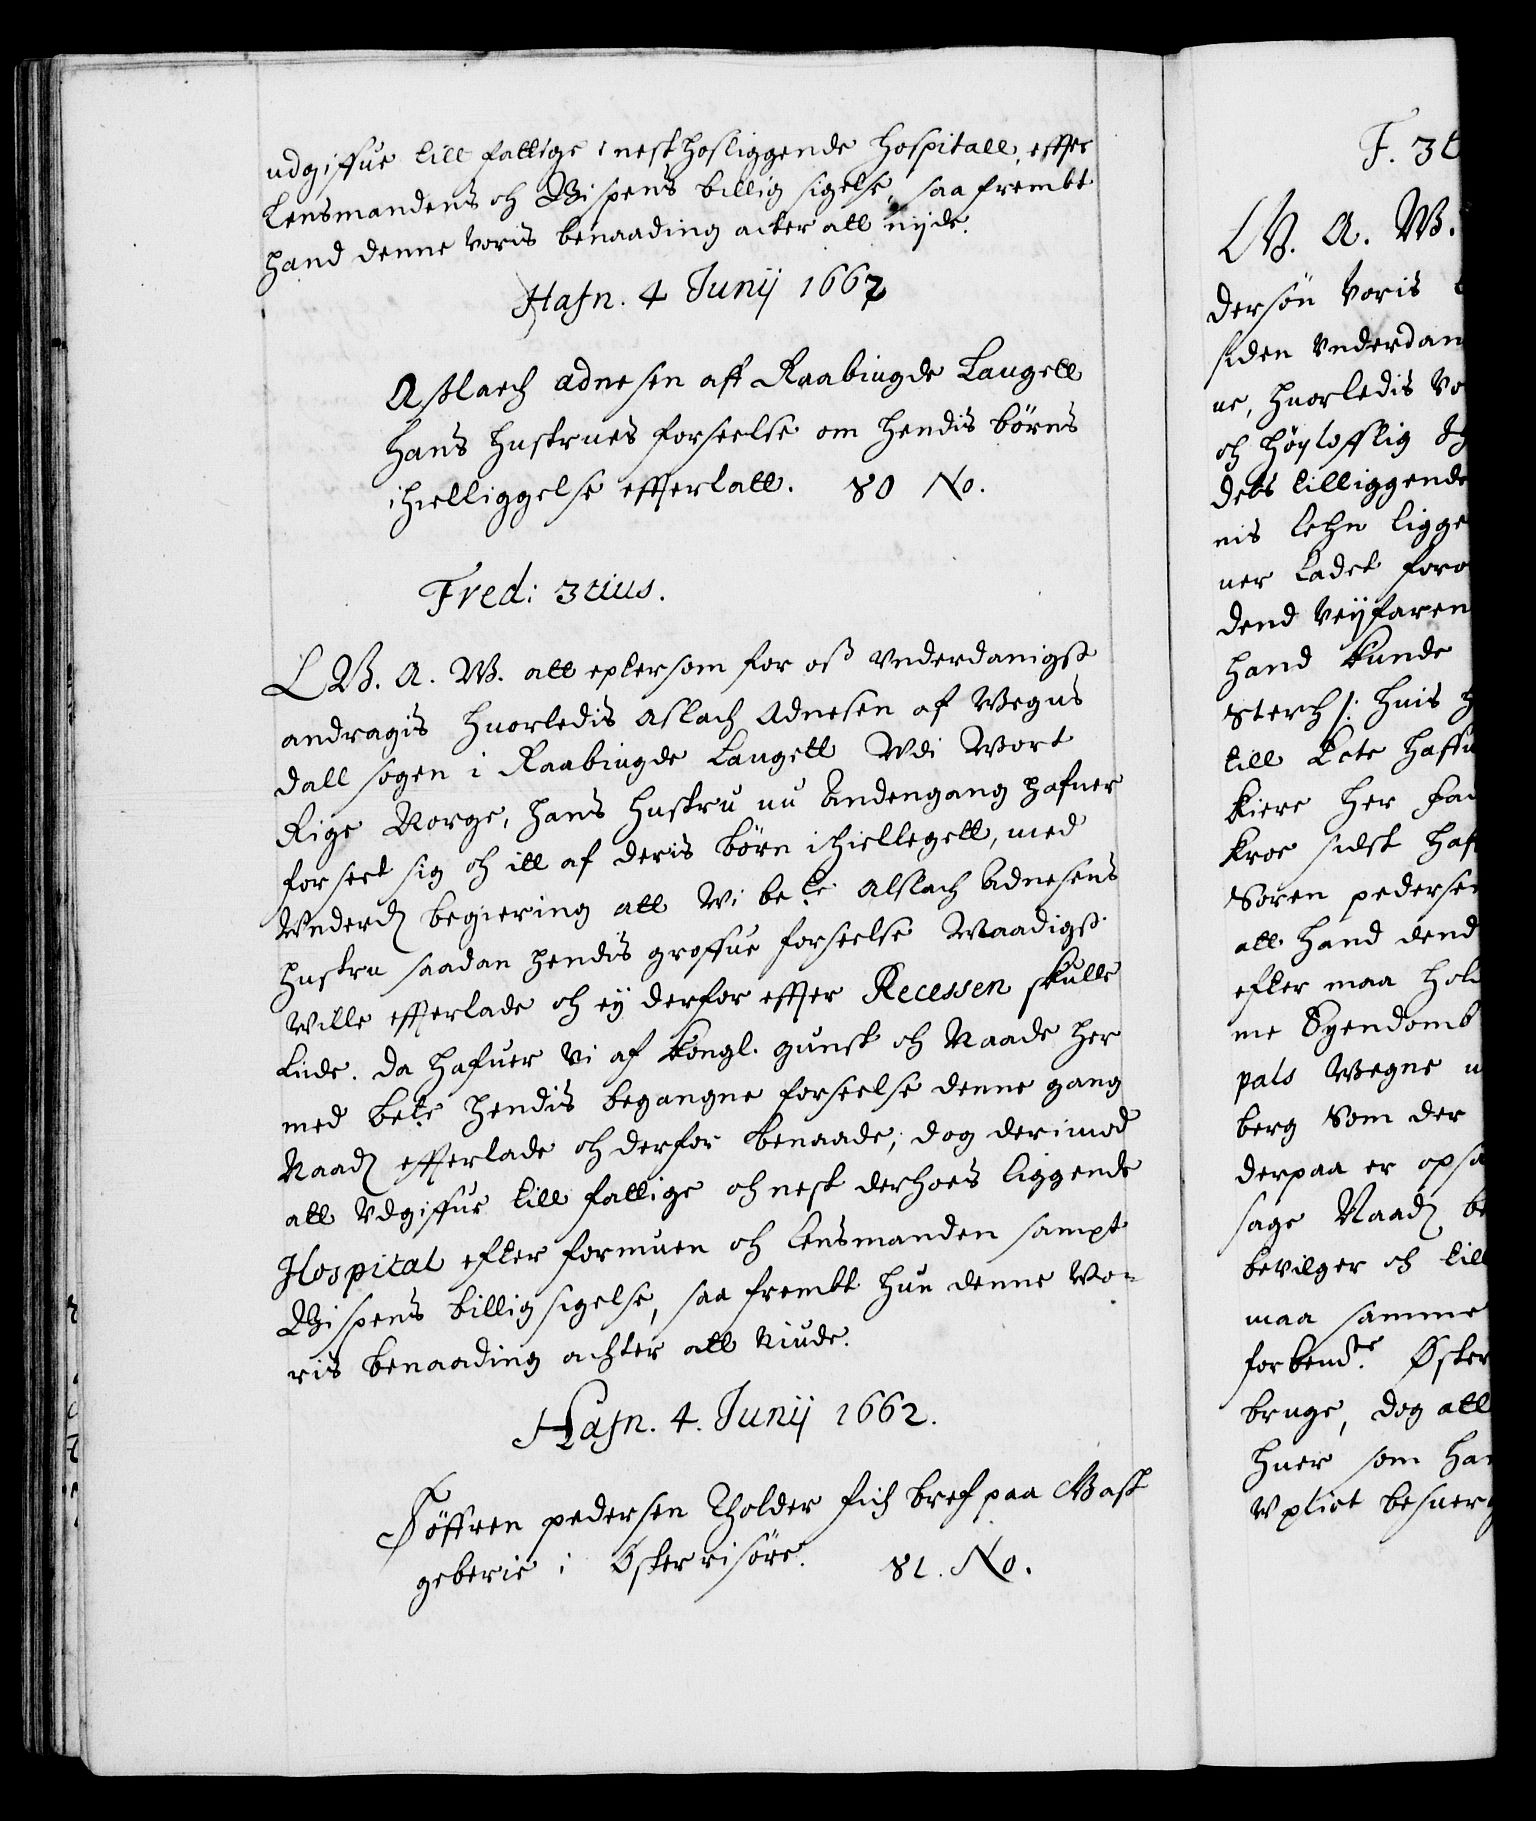 udgiffue till fattige i nest hosliggende Hospitall, effter
Lensmandens och Bispens billig sigelse, saa frembt
hand denne voris benaading acter att nyde.
Hafn. 4 Junij 1662
Asslach Adnesen aff Raabiugde Laugett
hans hustrues forseelse om hendis börns
ihielliggelse effterlatt. 80 No.
Fred: 3tius.
L W. A. W. att eptersom for oss vnderdanigst
andragis huorledis Aslach Adnesen af Wegus
dall sogen i Raabiugde Laugett Vdi Wort
Rige Norge, hans hustru nu Andengang hafuer
forseet sig och itt af deris börn ihiellegett, med
Vnderd begiering att Wi bete Alslach Adnesens
hustru saadan hendis groffue forseelse Naadigst
Wille effterlade och ey derfor effter Recessen skulle
liide. da hafuer Vi af kongl. gunst och Naade her
med bete hendis begangne forseelse denne gang
Naad effterlade och derfor benaade, dog derimod
att Vdgiffue till fattige och nest derhoes liggende
Hospital efter formuen och Lensmanden sampt
Bispens billig sigelse, saa frembt hun denne Vo-
ris benaading achter att Niude.
Hafn. 4. Junij 1662.
Söffren pedersen Tholder fich bref paa Gast
geberie i Østerrisöer. 81. No.
F. 3t
L W. A. W.
dersön Voris
siden Vnderdan
ne, huorledis Vo
och höyloflig
dets tilliggende
nis lehn ligge
ner ladet foro
dend Veyfaren
hand kunde
Sterch /: huis
till Lete haffu
kiere her fad
kroe sidst haf
Sören pedersen
att hand dend
efter maa hold
me Eyendomb
pals Wegne
berg Som der
derpaa er opsa
sage Naad be
bevilger och till
maa samme
forbendte Øster
bruge, dog att
huer som han
Vplict besuer